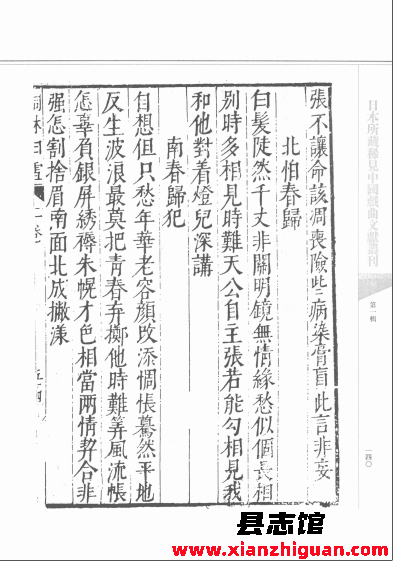 日本所藏稀見中國戲曲文獻叢刊
第一輯
一四〇
張不讓命該凋喪險些病染膏肓此言非妄
北伯春歸
白髮陡然千丈非關明鏡無情緣愁似個長相
別時多相見時難天公自主張若能勾相見我
和他對着燈兒深講
南春歸犯
自想但只愁年華老容顏改添惆悵驀然平地
反生波浪最莫把青春弃擲他時難筭風流帳
怎辜負銀屏綉褥朱幌才色相當兩情契合非
强怎割捨眉南面北成撇漾
县志馆
www.xianzhiguan.com